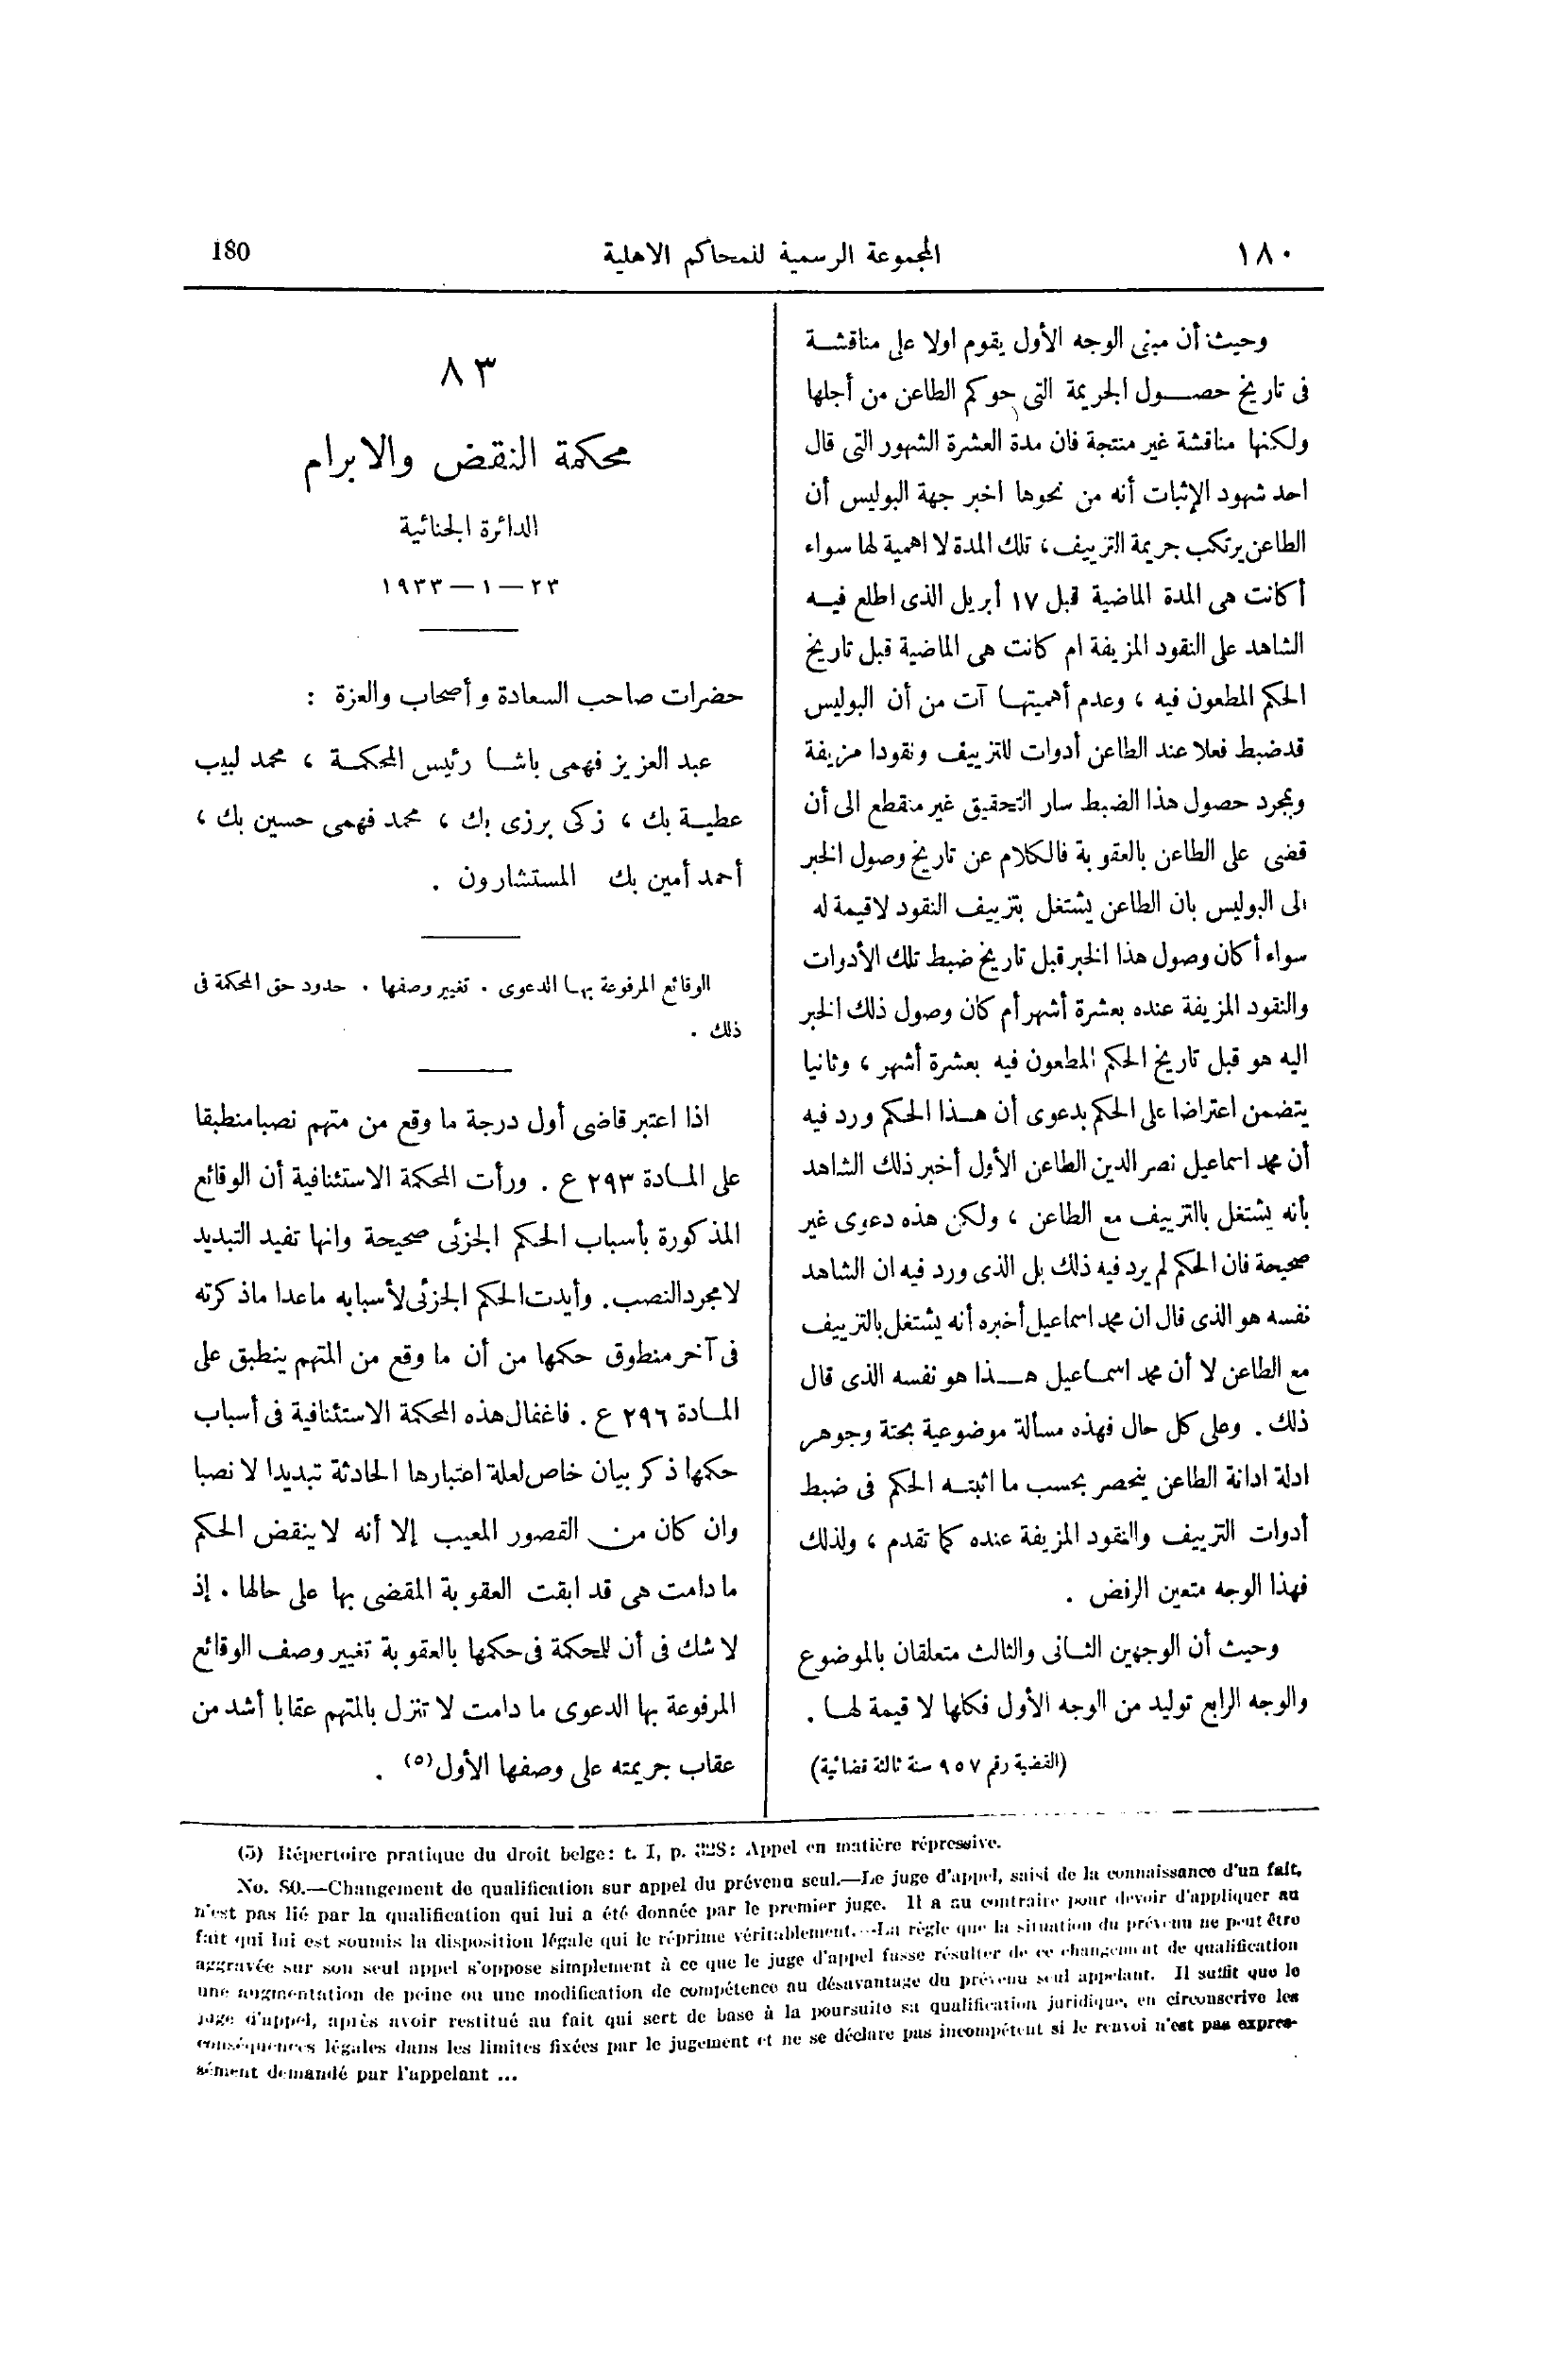 ١٨٠ المجموعة الرسمية للمحاكم الاهلية 180
وحيث أن مبنى الوجه الأول يقوم اولا على مناقشة
فى تاريخ حصول الجريمة التى حوكم الطاعن من أجلها
ولكنها مناقشة غير منتجة فان مدة العشرة الشهور التى قال
احد شهود الإثبات أنه من نحوها اخبر جهة البوليس أن
الطاعن يرتكب جريمة التزييف، تلك المدة لا اهمية لها سواء
أكانت هى المدة الماضية قبل ١٧ أبريل الذى اطلع فيه
الشاهد على النقود المزيفة ام كانت هى الماضية قبل تاريخ
الحكم المطعون فيه، وعدم أهميتها آت من أن البوليس
قد ضبط فعلا عند الطاعن أدوات للتزييف ونقودا مزيفة
وبمجرد حصول هذا الضبط سار التحقيق غير منقطع الى أن
قضى على الطاعن بالعقوبة فالكلام عن تاريخ وصول الخبر
الى البوليس بان الطاعن يشتغل بتزييف النقود لا قيمة له
سواء أكان وصول هذا الخبر قبل تاريخ ضبط تلك الأدوات
والنقود المزيفة عنده بعشرة أشهر أم كان وصول ذلك الخبر
اليه هو قبل تاريخ الحكم المطعون فيه بعشرة أشهر، وثانيا
يتضمن اعتراضا على الحكم بدعوى أن هذا الحكم ورد فيه
أن محمد اسماعيل نصر الدين الطاعن الأول أخبر ذلك الشاهد
بأنه يشتغل بالتزييف مع الطاعن، ولكن هذه دعوى غير
صحيحة فان الحكم لم يرد فيه ذلك بل الذى ورد فيه ان الشاهد
نفسه هو الذى قال ان محمد اسماعيل أخبره أنه يشتغل بالتزييف
مع الطاعن لا أن محمد اسماعيل هذا هو نفسه الذى قال
ذلك. وعلى كل حال فهذه مسألة موضوعية بحتة وجوهر
ادلة ادانة الطاعن ينحصر بحسب ما اثبته الحكم فى ضبط
أدوات التزييف والنقود المزيفة عنده كما تقدم، ولذلك
فهذا الوجه متعين الرفض.
وحيث أن الوجهين الثانى والثالث متعلقان بالموضوع
والوجه الرابع توليد من الوجه الأول فكلها لا قيمة لها.
(القضية رقم ٩٥٧ سنة ثالثة قضائية)
٨٣
محكمة النقض والابرام
الدائرة الجنائية
٢٣ — ١ — ١٩٣٣
حضرات صاحب السعادة وأصحاب والعزة :
عبد العزيز فهمى باشا رئيس المحكمة، محمد لبيب
عطية بك، زكى برزى بك، محمد فهمى حسين بك،
أحمد أمين بك المستشارون.
الوقائع المرفوعة بها الدعوى. تغيير وصفها. حدود حق المحكمة فى
ذلك.
اذا اعتبر قاضى أول درجة ما وقع من متهم نصبا منطبقا
على المادة ٢٩٣ ع. ورأت المحكمة الاستئنافية أن الوقائع
المذكورة بأسباب الحكم الجزئى صحيحة وانها تفيد التبديد
لا مجرد النصب. وأيدت الحكم الجزئى لأسبابه ما عدا ما ذكرته
فى آخر منطوق حكمها من أن ما وقع من المتهم ينطبق على
المادة ٢٩٦ ع. فاغفال هذه المحكمة الاستئنافية فى أسباب
حكمها ذكر بيان خاص لعلة اعتبارها الحادثة تبديدا لا نصبا
وان كان من القصور المعيب إلا أنه لا ينقض الحكم
ما دامت هى قد ابقت العقوبة المقضى بها على حالها. إذ
لا شك فى أن للمحكمة فى حكمها بالعقوبة تغيير وصف الوقائع
المرفوعة بها الدعوى ما دامت لا تنزل بالمتهم عقابا أشد من
عقاب جريمته على وصفها الأول(٥).
(5) Répertoire pratique du droit belge: t. I, p. 328: Appel en matière répressive.
No. 80.—Changement de qualification sur appel du prévenu seul.—Le juge d'appel, saisi de la connaissance d'un fait,
n'est pas lié par la qualification qui lui a été donnée par le premier juge. Il a au contraire pour devoir d'appliquer au
fait qui lui est soumis la disposition légale qui le réprime véritablement.—La règle que la situation du prévenu ne peut être
aggravée sur son seul appel s'oppose simplement à ce que le juge d'appel fasse résulter de ce changement de qualification
une augmentation de peine ou une modification de compétence au désavantage du prévenu seul appelant. Il suffit que le
juge d'appel, après avoir restitué au fait qui sert de base à la poursuite sa qualification juridique, en circonscrive les
conséquences légales dans les limites fixées par le jugement et ne se déclare pas incompétent si le renvoi n'est pas expres-
sément demandé par l'appelant ...